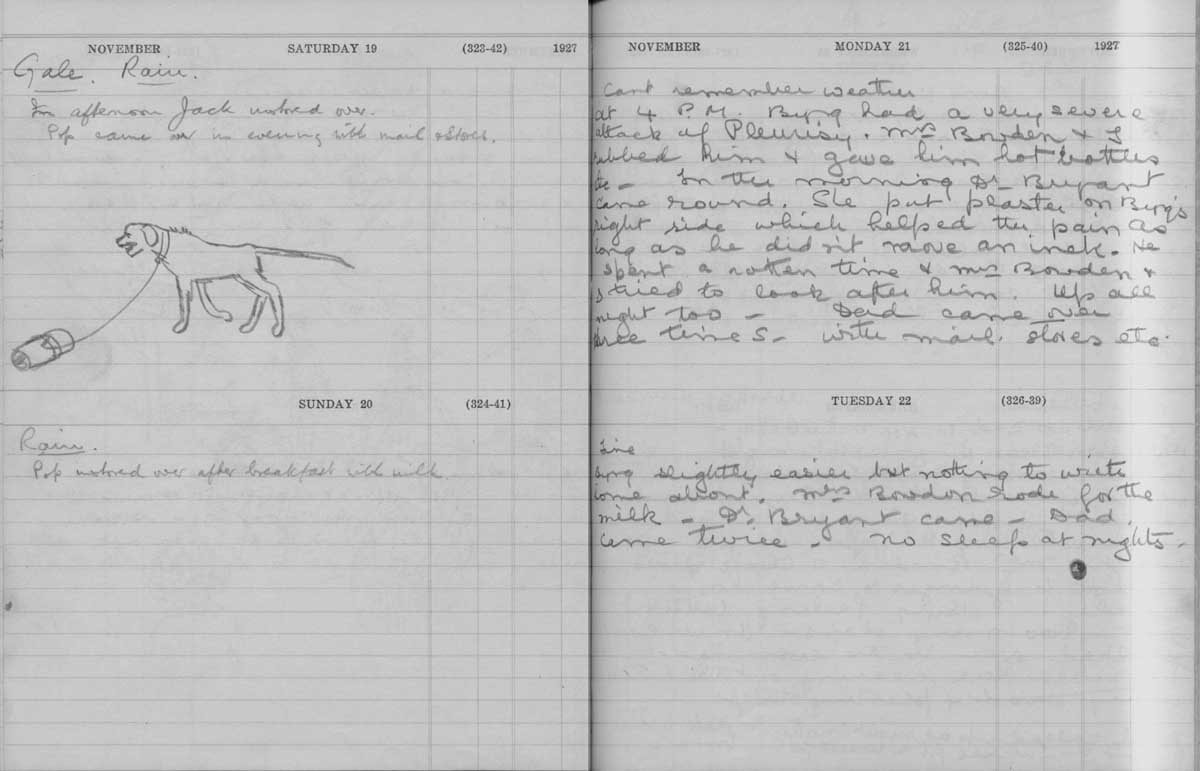 NOVEMBER SATURDAY 19 (323-42) 1927
Gale. Rain.
In afternoon Jack motored over.
Pop came over in evening with mail & stores.
SUNDAY 20 (324-41)
Rain.
Pop motored over after breakfast with milk.
NOVEMBER MONDAY 21 (325-40) 1927
Cant remember weather
at 4 P.M. Byng had a very severe
attack of Pleurisy. Mrs Bowden & I
rubbed him & gave him hot bottles
etc - In the morning Dr Bryant
came round. She put plaster on Byng's
right side which helped the pain as
long as he didn't move an inch. He
spent a rotten time & Mrs Bowden &
I tried to look after him. Up all
night too - Dad came over
three times - with mail. stores etc.
TUESDAY 22 (326-39)
Fine
Byng slightly easier but nothing to write
home about. Mrs Bowdon rode for the
milk - Dr. Bryant came - Dad.
came twice - no sleep at nights -